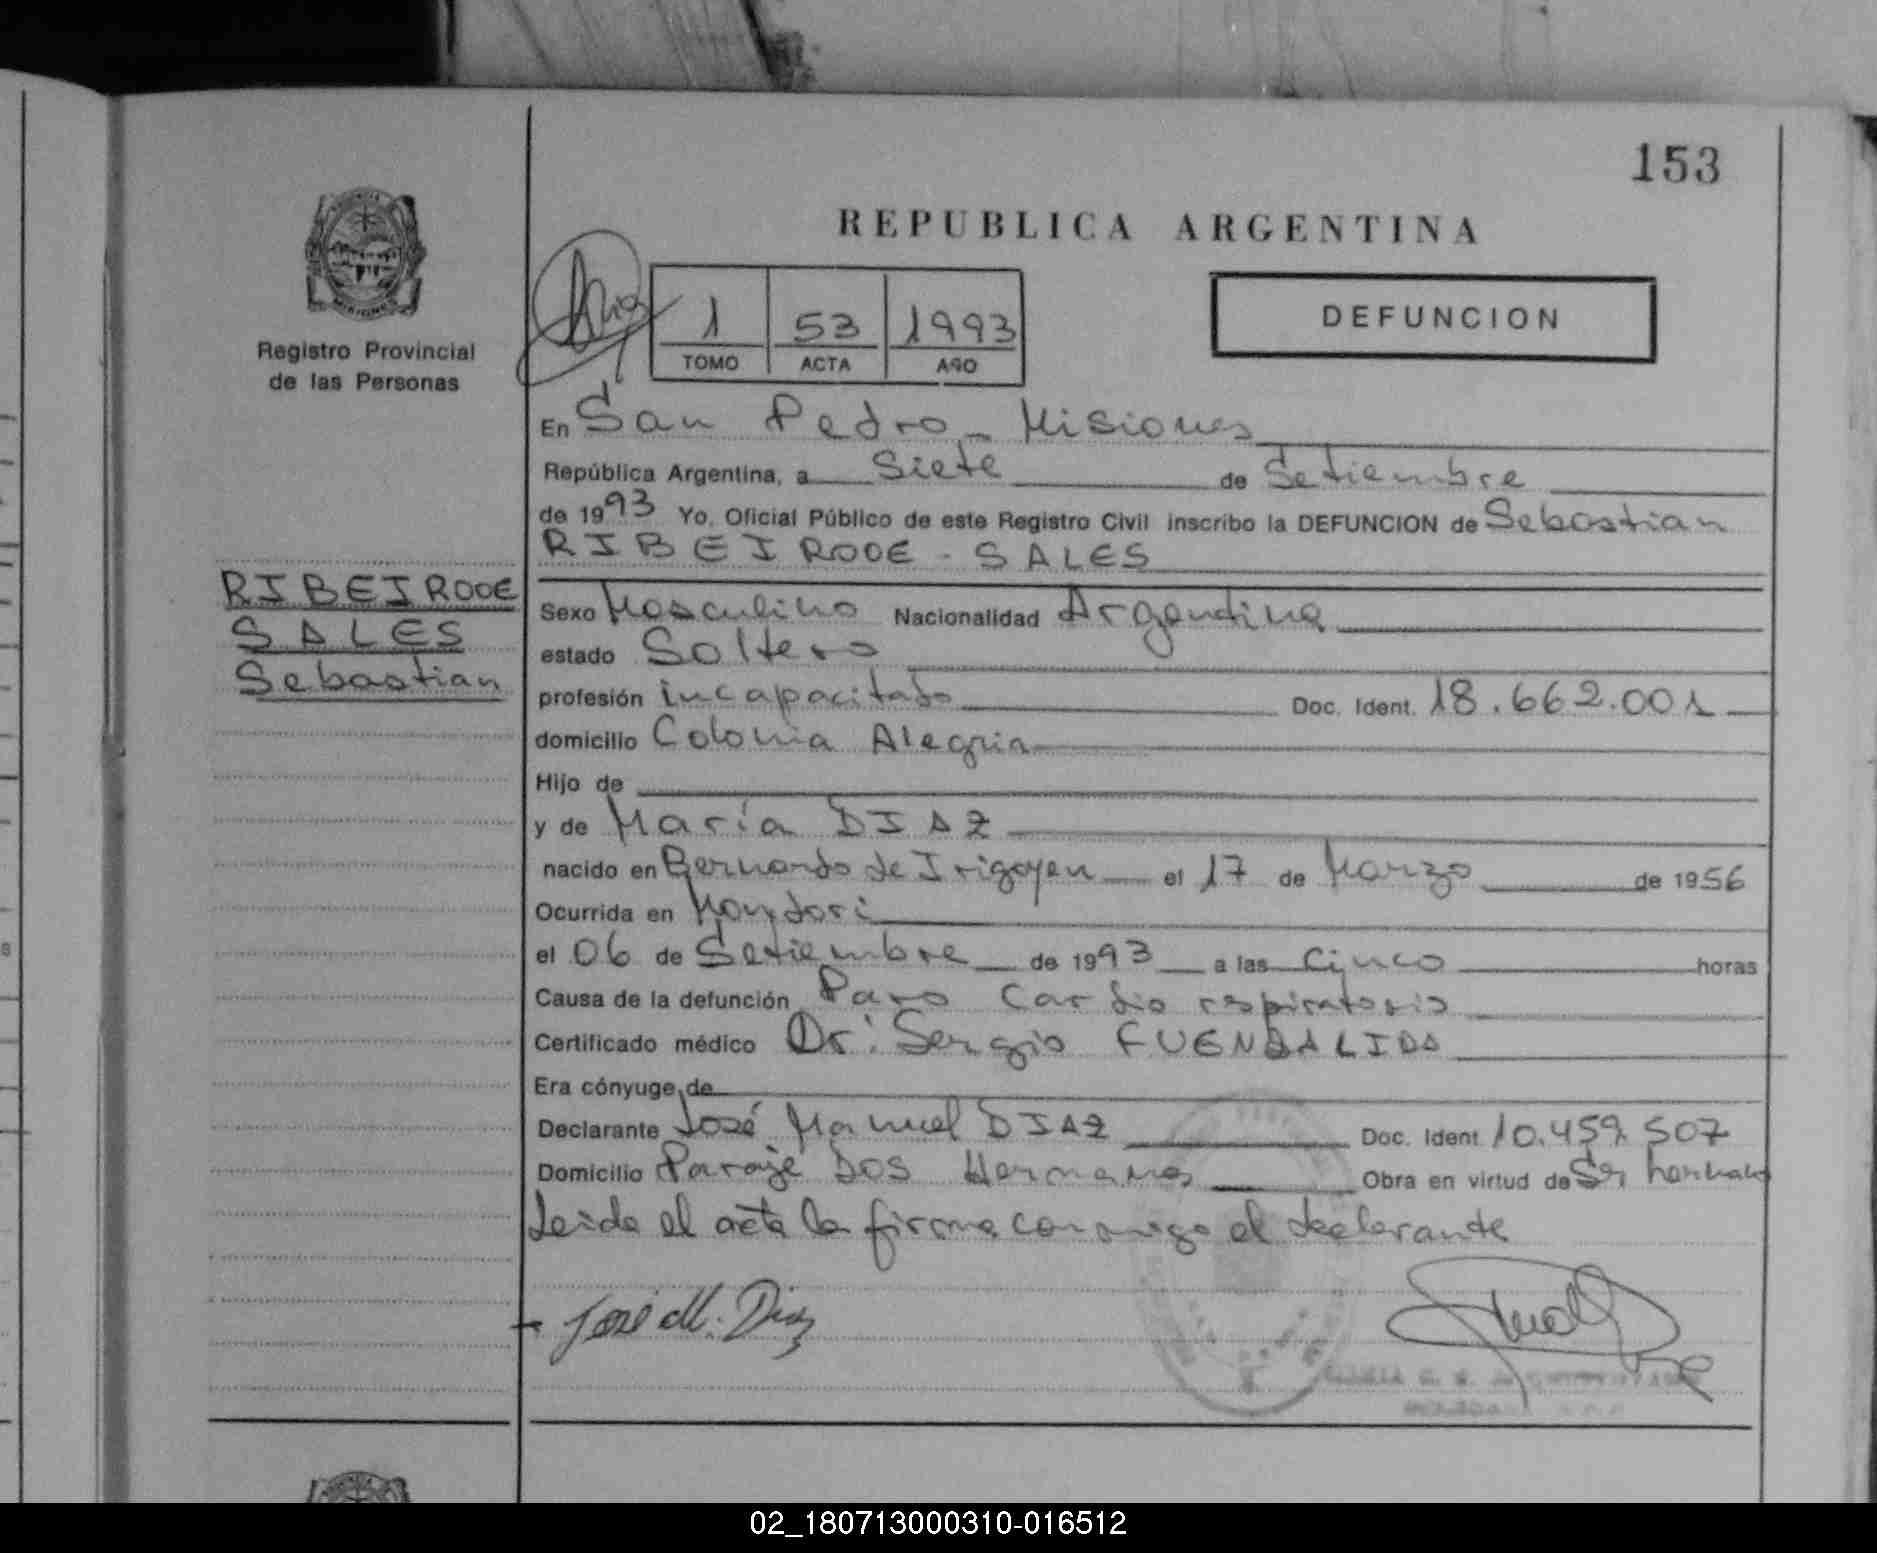 153
REPUBLICA ARGENTINA
DEFUNCION
1 53 1993
TOMO ACTA AÑO
Registro Provincial
de las Personas
En San Pedro - Misiones
República Argentina, a Siete de Setiembre
de 1993 Yo, Oficial Público de este Registro Civil inscribo la DEFUNCION de Sebastian
RIBEIRODE - SALES
RIBEIRODE
SALES
Sebastian
Sexo Masculino Nacionalidad Argentina
estado Soltero
profesión incapacitado Doc. Ident. 18.662.001
domicilio Colonia Alegria
Hijo de
y de María DIAZ
nacido en Bernardo de Irigoyen el 17 de Marzo de 1956
Ocurrida en
el 06 de Setiembre de 1993 a las Cinco horas
Causa de la defunción Paro Cardio respiratorio
Certificado médico Dr: Sergio FUENZALIDA
Era cónyuge de
Declarante José Manuel DIAZ Doc. Ident. 10.459.507
Domicilio Paraje Dos Hermanas Obra en virtud de Ser hermano
Leida el acta la firma conmigo el declarante
José M. Diaz
02_180713000310-016512